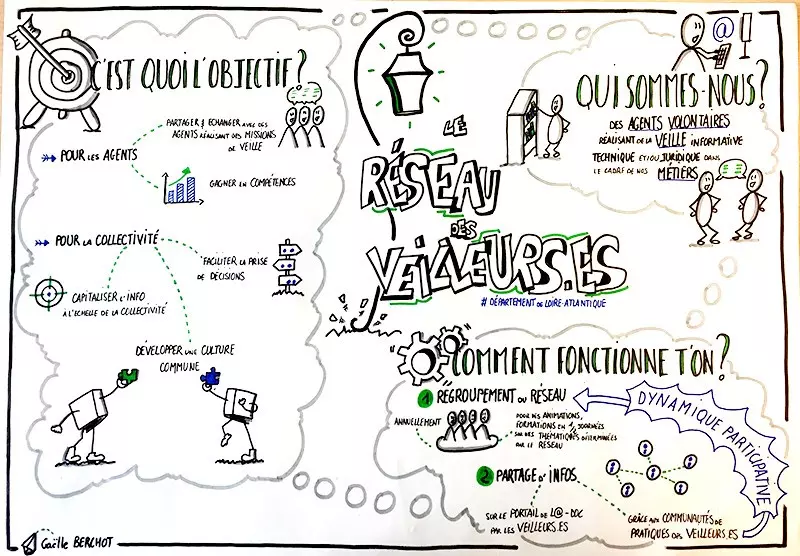 C'EST QUOI L'OBJECTIF?
PARTAGER & ECHANGER AVEC DES
AGENTS RÉALISANT DES MISSIONS
DE VEILLE
POUR LES AGENTS
GAGNER EN COMPÉTENCES
POUR LA COLLECTIVITÉ
FACILITER LA PRISE
DE DÉCISIONS
CAPITALISER L'INFO
À L'ECHELLE DE LA COLLECTIVITÉ
DÉVELOPPER UNE CULTURE
COMMUNE
Gaëlle BERCHOT
LE
RÉSEAU
DES
VEILLEURS.ES
# DÉPARTEMENT DE LOIRE-ATLANTIQUE
@
QUI SOMMES-NOUS?
DES AGENTS VOLONTAIRES
RÉALISANT DE LA VEILLE INFORMATIVE
TECHNIQUE ET/OU JURIDIQUE DANS
LE CADRE DE NOS MÉTIERS
COMMENT FONCTIONNE T'ON?
1 REGROUPEMENT DU RÉSEAU
ANNUELLEMENT
POUR DES ANIMATIONS,
FORMATIONS EN 1/2 JOURNÉES
SUR DES THÉMATIQUES DÉTERMINÉES
PAR LE RÉSEAU
DYNAMIQUE PARTICIPATIVE
2 PARTAGE D'INFOS
SUR LE PORTAIL DE L@-DOC
PAR LES VEILLEURS.ES
GRÂCE AUX COMMUNAUTÉS DE
PRATIQUES DES VEILLEURS.ES